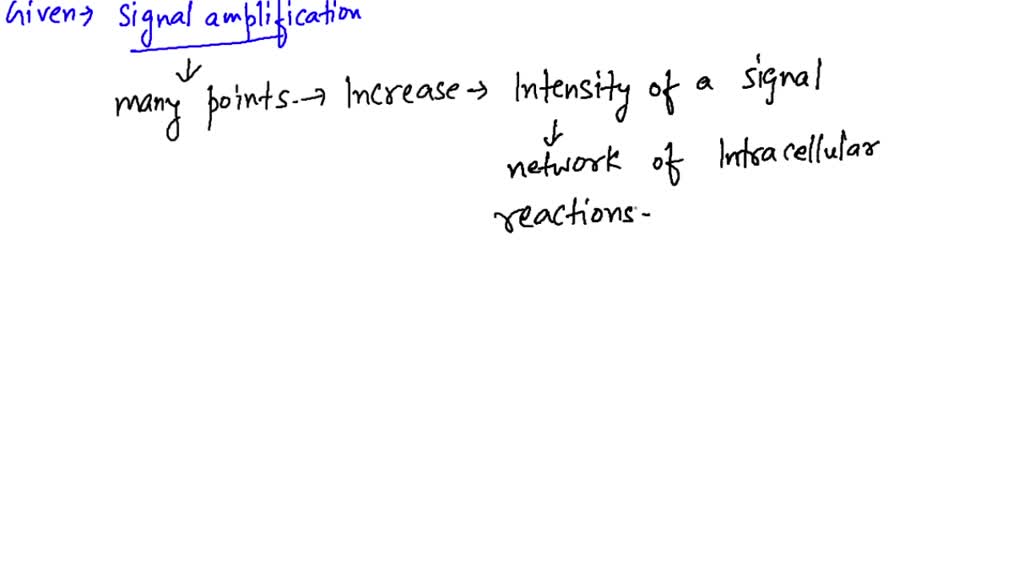 Given→ Signal amplification
↓
many points.→ Increase→ Intensity of a signal
↓
network of Intracellular
reactions-